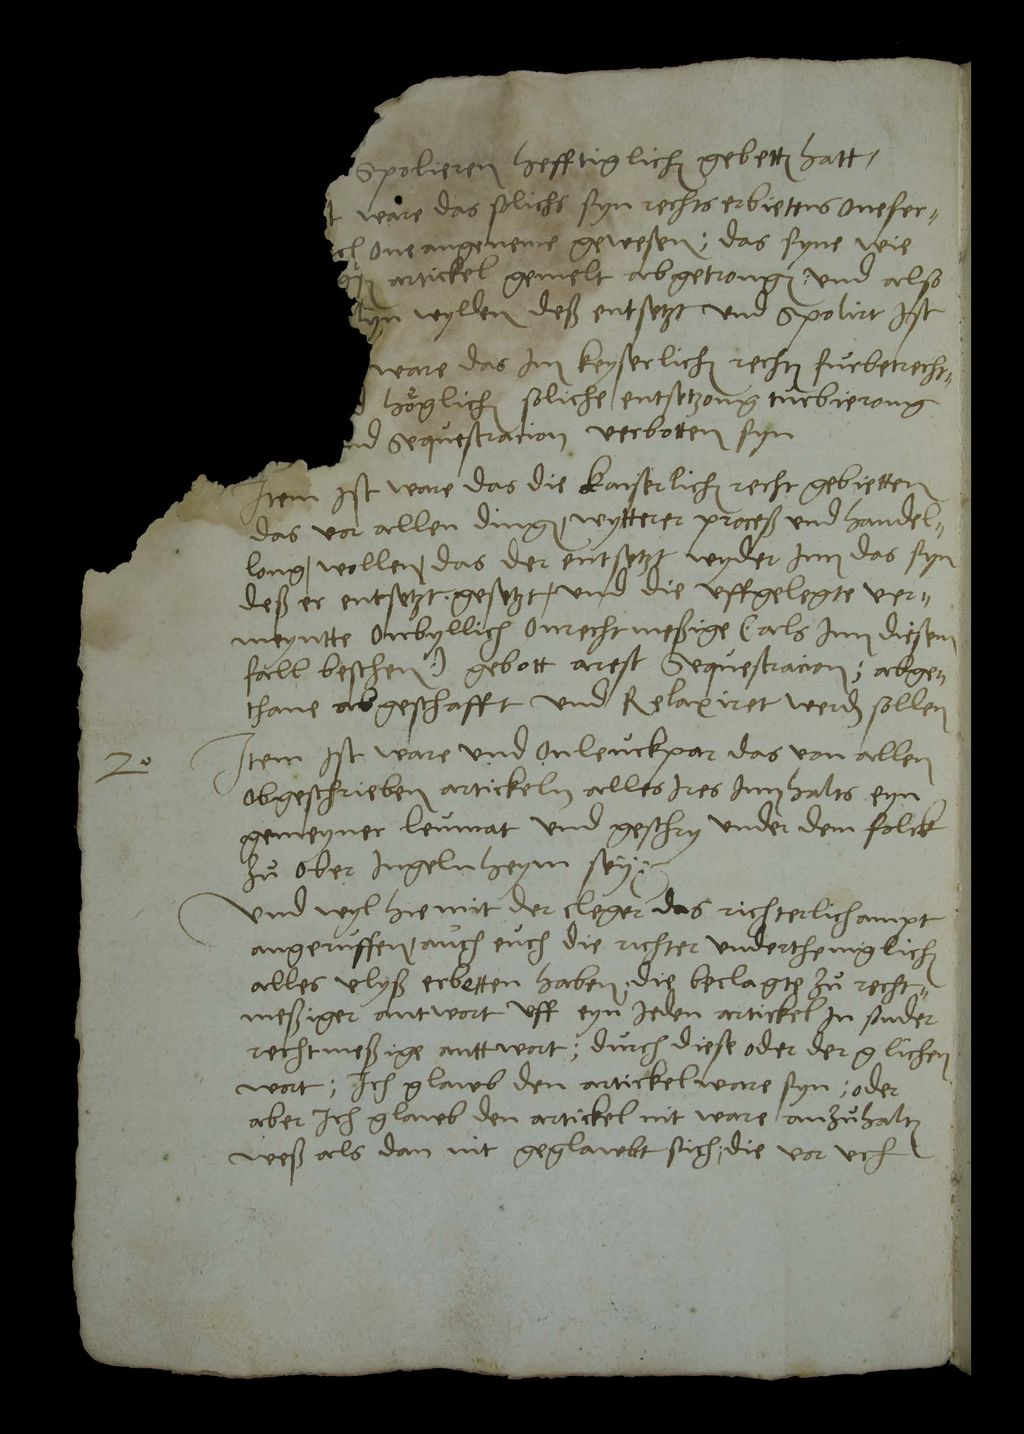 Spolieren hefftiglich gebett hatt,
t ware das solichs syn rechts erbietens onefer„
ich one angeneme gewesen; das syne wie
artickel gemelt abgetrong und also
wylden deß entsetzt und Spolirt Ist
ware das Im keyserlich recht furbetrecht„
höglich soliche entsetzong turbierong
nd Sequestration verbotten syn
Item Ist ware das die kaiserlich recht gebietten
das vor allen dingen, wytterer proceß und handel„
long, wollen, das der entsetzt wyder Inn das syn
deß er entsetzt, gesetzt, und die uffgelegte ver„
meyntte Onbyllich Onrechtmeßige (als Inn diesem
fall beschen) gebott arest Sequestracion; abge„
thane abgeschafft und Relaxiret werd sollen
20 Item Ist ware und Onleuckpar das von allen
obgeschrieben artickeln alles Ires Innhalts eyn
gemeyner leumat und geschry under dem folck
zu Ober Ingelnheym sey
Und wyl hiemit der cleger das richterlich ampt
angeruffen, auch euch die richter undertheniglich
alles vlyß erbetten haben, die beclagte zu recht„
meßiger antwort uff eyn Jeden artickel In sonder
rechtmeßige anttwort; durch diese oder der glichen
wort; Ich glaub den artickel ware syn; oder
aber Ich glaub den artickel nit ware anzuhalt
weß als dan nit geglawbt sich, die vor uch